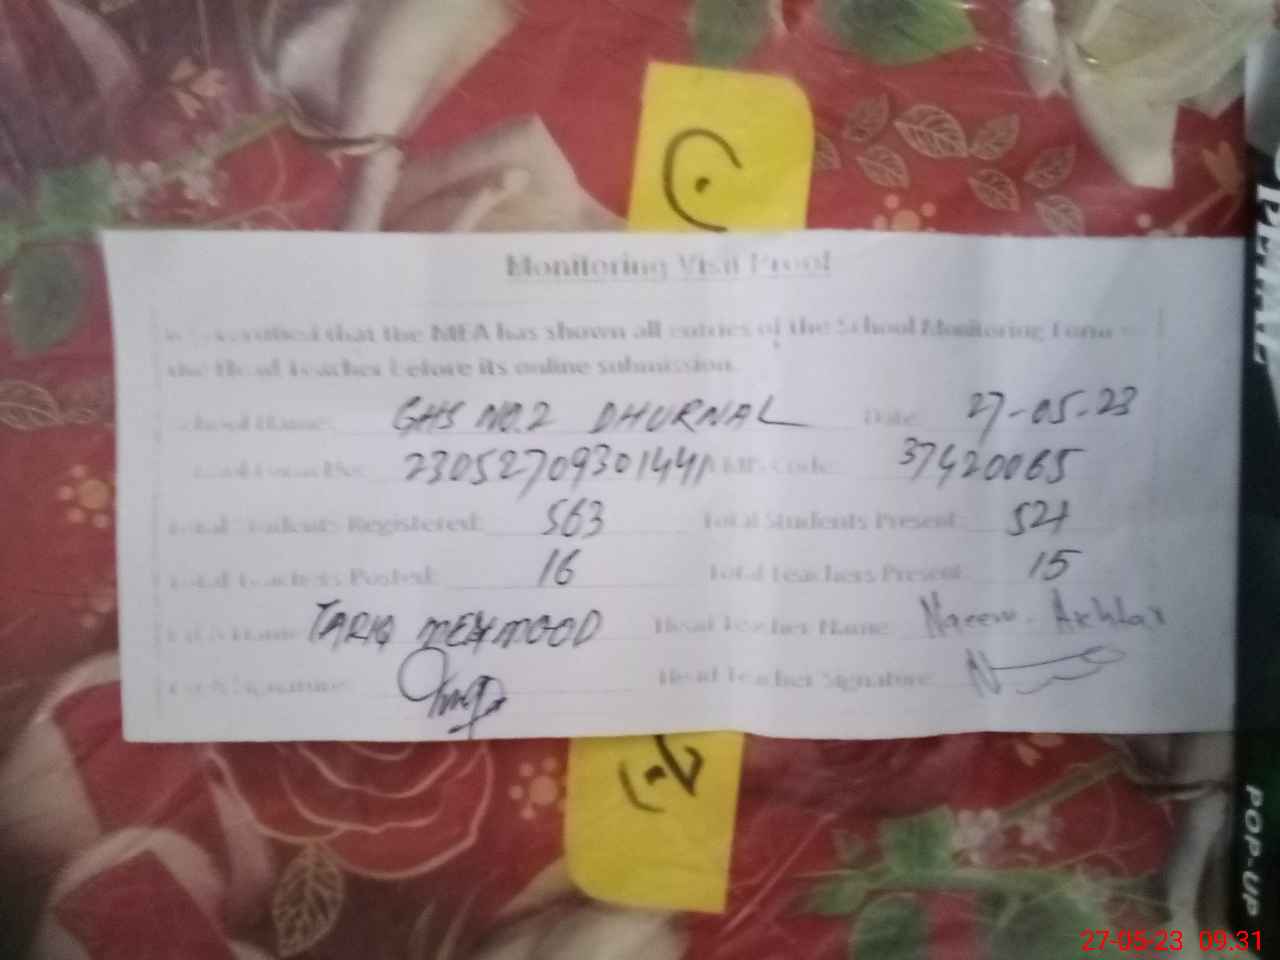 Monitoring Visit Proof
that the MEA has shown all entries of the School Monitoring Form
the Head Teacher before its online submission.
School Name: GHS NO.2 DHURNAL Date: 27-05-23
Code: 37420065
Total Students Registered: 563 Total Students Present: 521
Total Teachers Posted: 16 Total Teachers Present: 15
Name: TARIQ MEHMOOD Head Teacher Name: Naeem Akhtar
Signature: Head Teacher Signature:
POP-UP
27-05-23 09:31